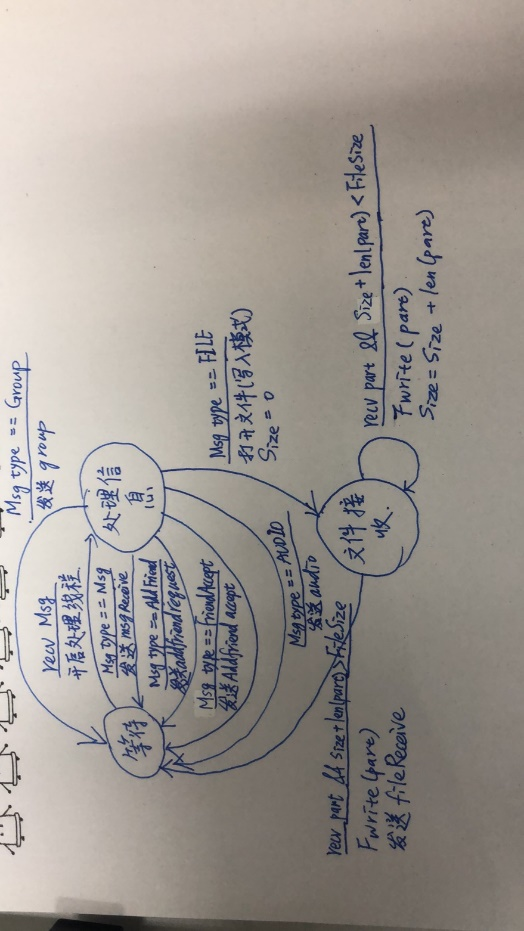 Msg type == Group
发送 group
recv Msg
开启处理线程
Msg type == Msg
发送 msgReceive
Msg type == AddFriend
发送addfriendrequest
Msg type == FriendAccept
发送Addfriend accept
等待
处理信
息
Msg type == FILE
打开文件(写入模式)
Size = 0
Msg type == AUDIO
发送 audio
文件接
收
recv part && Size + len(part) < FileSize
Fwrite (part)
Size = Size + len (part)
recv part && size + len(part) > FileSize
Fwrite (part)
发送 fileReceive